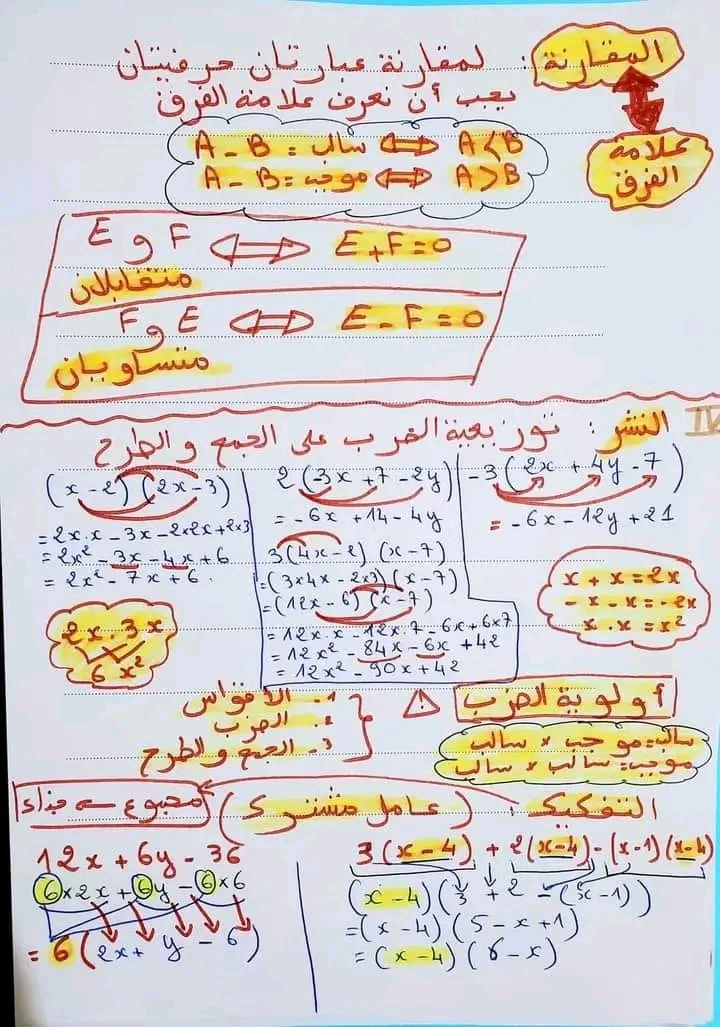 المقارنة : لمقارنة عبارتان حرفيتان
يجب أن نعرف علامة الفرق
علامة
الفرق
A - B = سالب ⇔ A < B
A - B = موجب ⇔ A > B
E و F ⇔ E + F = 0
متقابلان
F و E ⇔ E - F = 0
متساويان
IV النشر : توزيعية الضرب على الجمع و الطرح
(x - 2)(2x - 3)
= 2x·x - 3x - 2×2x + 2×3
= 2x² - 3x - 4x + 6
= 2x² - 7x + 6
2x · 3x
6x²
2(-3x + 7 - 2y)
= -6x + 14 - 4y
3(4x - 2)(x - 7)
= (3×4x - 2×3)(x - 7)
= (12x - 6)(x - 7)
= 12x·x - 12x·7 - 6x + 6×7
= 12x² - 84x - 6x + 42
= 12x² - 90x + 42
-3(2x + 4y - 7)
= -6x - 12y + 21
x + x = 2x
-x - x = -2x
x · x = x²
أولوية الضرب ⚠
1- الأقواس
2- الضرب
3- الجمع و الطرح
سالب = موجب × سالب
موجب = سالب × سالب
التفكيك : (عامل مشترك) مجموع → جداء
12x + 6y - 36
6×2x + 6y - 6×6
= 6(2x + y - 6)
3(x - 4) + 2(x - 4) - (x - 1)(x - 4)
(x - 4)(3 + 2 - (x - 1))
= (x - 4)(5 - x + 1)
= (x - 4)(6 - x)